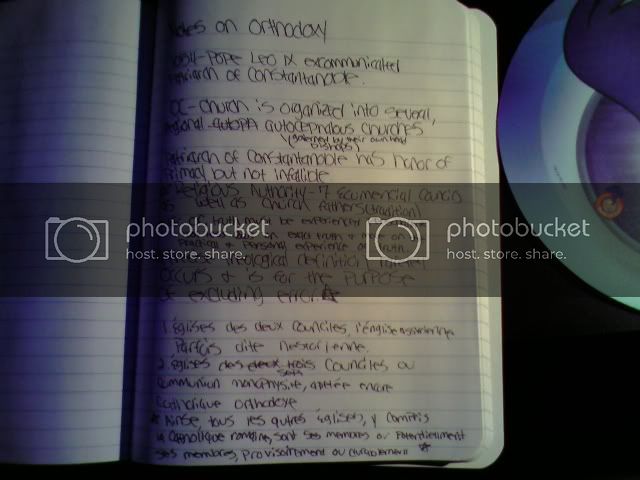 Notes on Orthodoxy
1054-Pope Leo IX excommunicated
Patriarch of Constantanoble.
OC-Church is organized into several,
regional autocephalous churches
(governed by their own head
Bishops)
Patriarch of Constantanoble has honor of
primacy but not infalible
Religious Authority-7 Ecumencial Councils
as well as Church Fathers (tradition)
photobucket
host. store. share.
photobucket
host. store. share.
must be experienced
practical & personal experience of truth
Theological definition
occurs & is for the purpose
of excluding error.
1. Églises des deux Councites, l'église assyrienne
Parfois dite nestorienne.
2. Églises des deux trois Councites ou
Communion monophysite, encre
Catholique Orthodoxe
tous les autres églises, y compris
la Catholique romaine, sont ses membres ou Potentiellement
ses membres, Provisoirement ou durablement